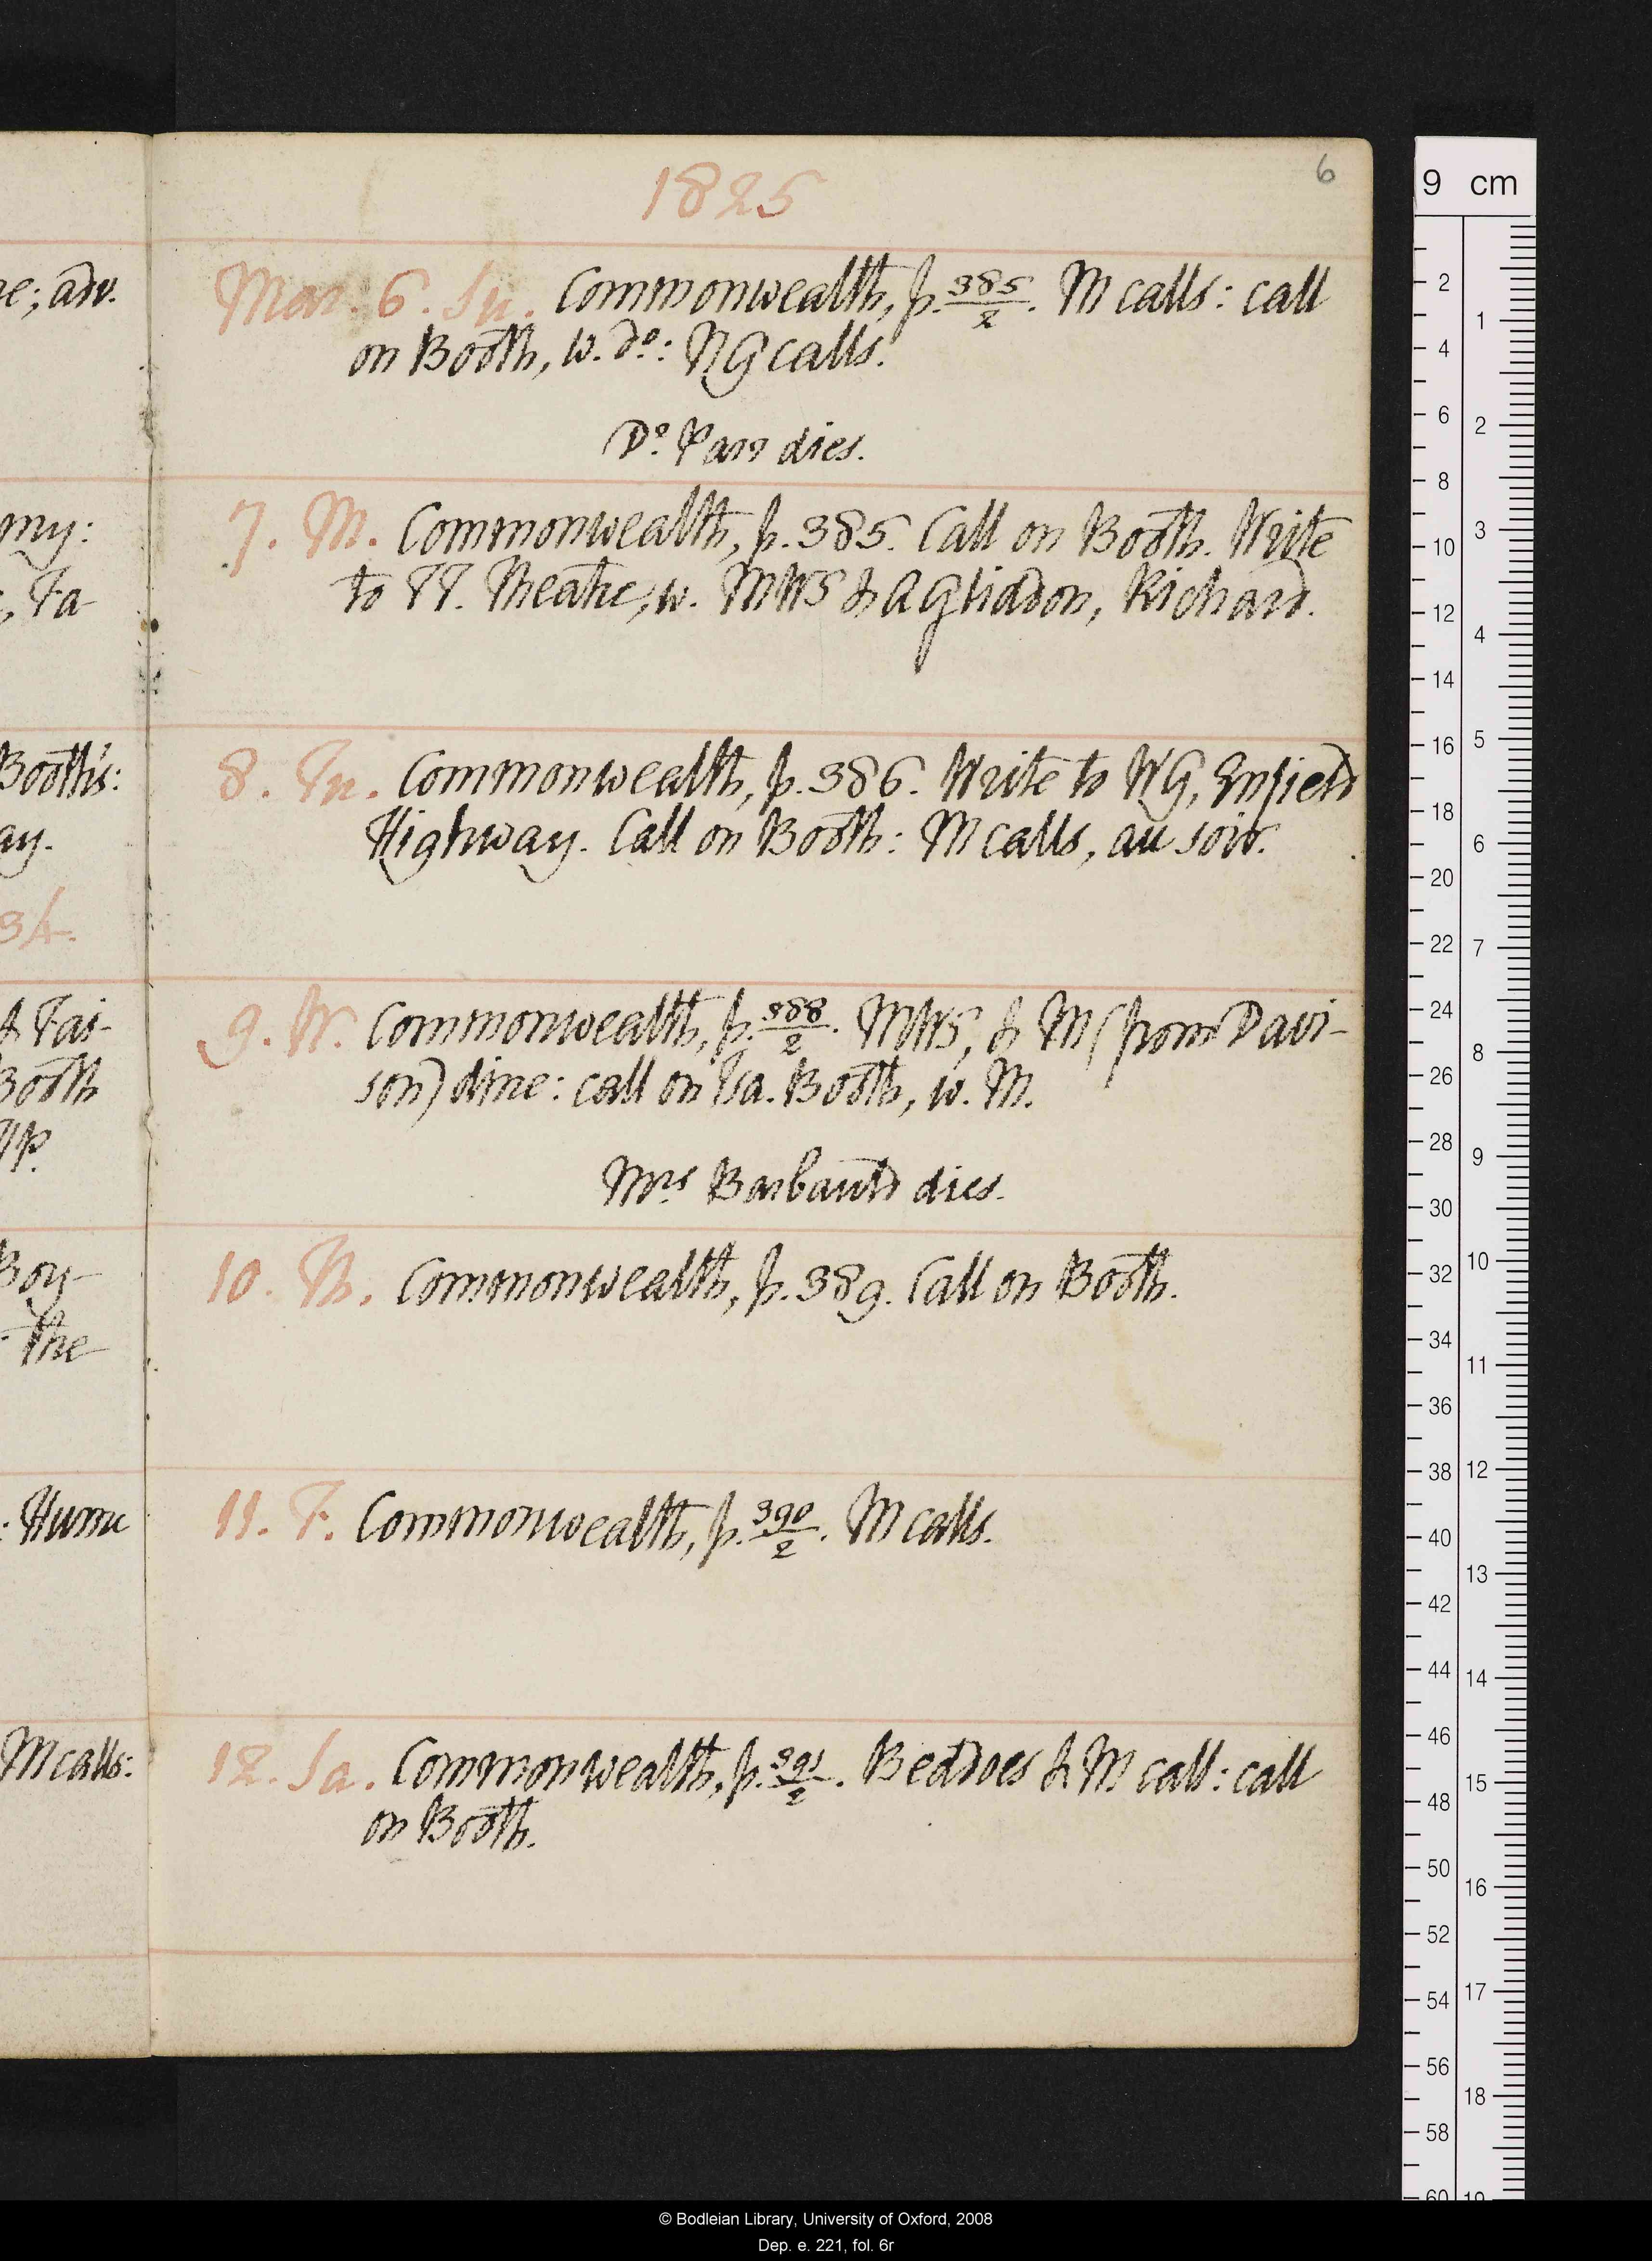 6
1825
Mar. 6. Su. Commonwealth, p. 385/2. M calls: call
on Booth, w. do: NG calls.
Dr. Parr dies.
7. M. Commonwealth, p. 385. Call on Booth. Write
to TT. Theatre, w. MWS & A Gliddon, Richard.
8. Tu. Commonwealth, p. 386. Write to WG, Enfield
Highway. Call on Booth: M calls, au soir.
9. W. Commonwealth, p. 388/2. MWS, & M (from Davi-
son) dine: call on Isa. Booth, w. M.
Mrs Barbauld dies.
10. Th. Commonwealth, p. 389. Call on Booth.
11. F. Commonwealth, p. 390/2. M calls.
12. Sa. Commonwealth, p. 391/2. Beddoes & M call: call
on Booth.
; adv.
my:
Fa
Booth's:
ay.
34.
& Fai-
Booth
Boy-
the
: Hume
M calls:
9 cm
2
4
6
8
10
12
14
16
18
20
22
24
26
28
30
32
34
36
38
40
42
44
46
48
50
52
54
56
58
60
1
2
3
4
5
6
7
8
9
10
11
12
13
14
15
16
17
18
19
© Bodleian Library, University of Oxford, 2008
Dep. e. 221, fol. 6r